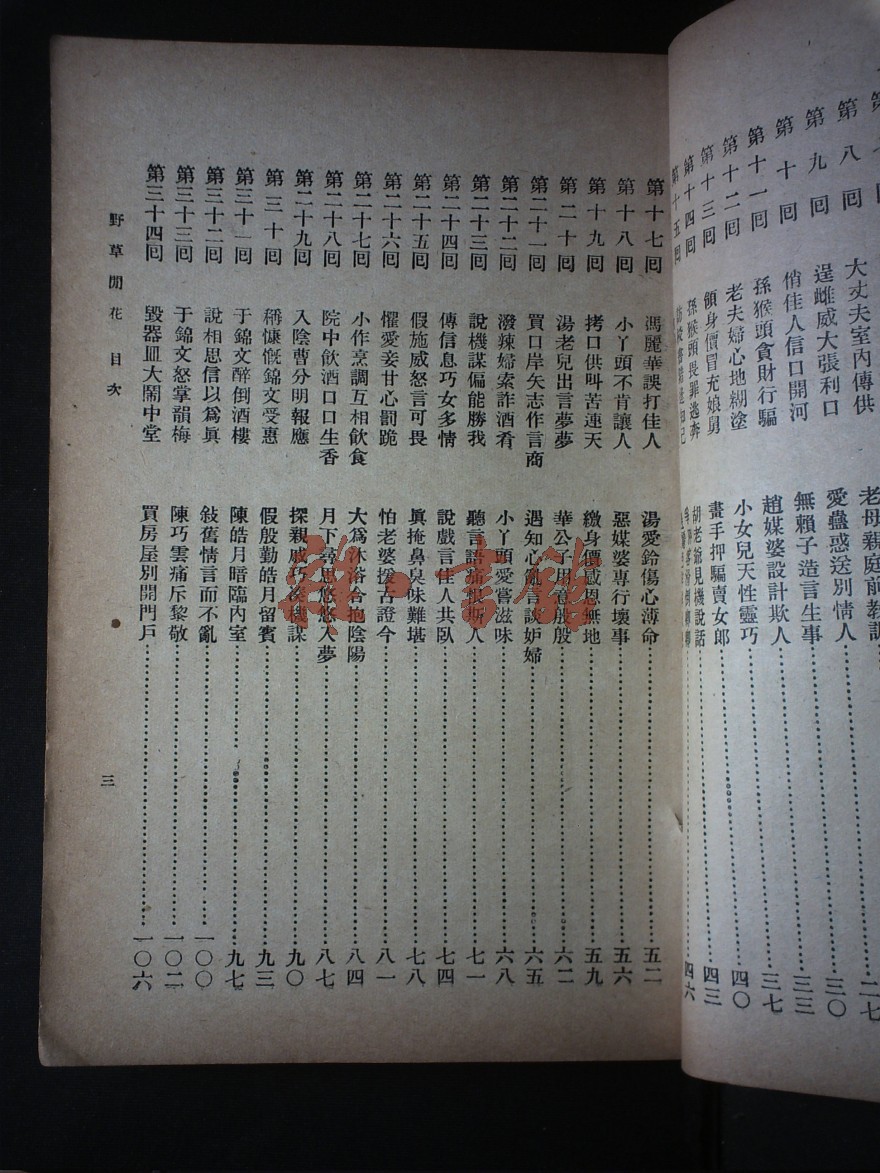 第八回 大丈夫室內傳供 老母親庭前教訓 二七
第九回 逞雌威大張利口 愛蠱惑送別情人 三〇
第十回 俏佳人信口開河 無賴子造言生事 三三
第十一回 孫猴頭貪財行騙 趙媒婆設計欺人 三七
第十二回 老夫婦心地糊塗 小女兒天性靈巧 四〇
第十三回 領身價冒充娘舅 畫手押騙賣女郎 四三
第十四回 孫猴頭畏罪逃奔 胡老爺見機說話 四六
第十五回
第十七回 馮麗華誤打佳人 湯愛鈴傷心薄命 五二
第十八回 小丫頭不肯讓人 惡媒婆專行壞事 五六
第十九回 拷口供叫苦連天 繳身價感恩無地 五九
第二十回 湯老兒出言夢夢 華公子用意殷殷 六二
第二十一回 買口岸矢志作言商 遇知心亂言談妒婦 六五
第二十二回 潑辣婦索詐酒肴 小丫頭愛嘗滋味 六八
第二十三回 說機謀偏能勝我 聽言語 斯人 七一
第二十四回 傳信息巧女多情 說戲言佳人共臥 七四
第二十五回 假施威怒言可畏 眞掩鼻臭味難堪 七八
第二十六回 懼愛妾甘心罰跪 怕老婆援古證今 八一
第二十七回 小作烹調互相飲食 大爲沐浴合抱陰陽 八四
第二十八回 院中飲酒口口生香 月下尋思悠悠入夢 八七
第二十九回 入陰曹分明報應 探親戚巧發機謀 九〇
第三十回 稱慷慨錦文受惠 假殷勤皓月留賓 九三
第三十一回 于錦文醉倒酒樓 陳皓月暗臨內室 九七
第三十二回 說相思信以爲眞 敍舊情言而不亂 一〇〇
第三十三回 于錦文怒掌韻梅 陳巧雲痛斥黎敬 一〇二
第三十四回 毀器皿大鬧中堂 買房屋別開門戶 一〇六
野草閒花 目次
三